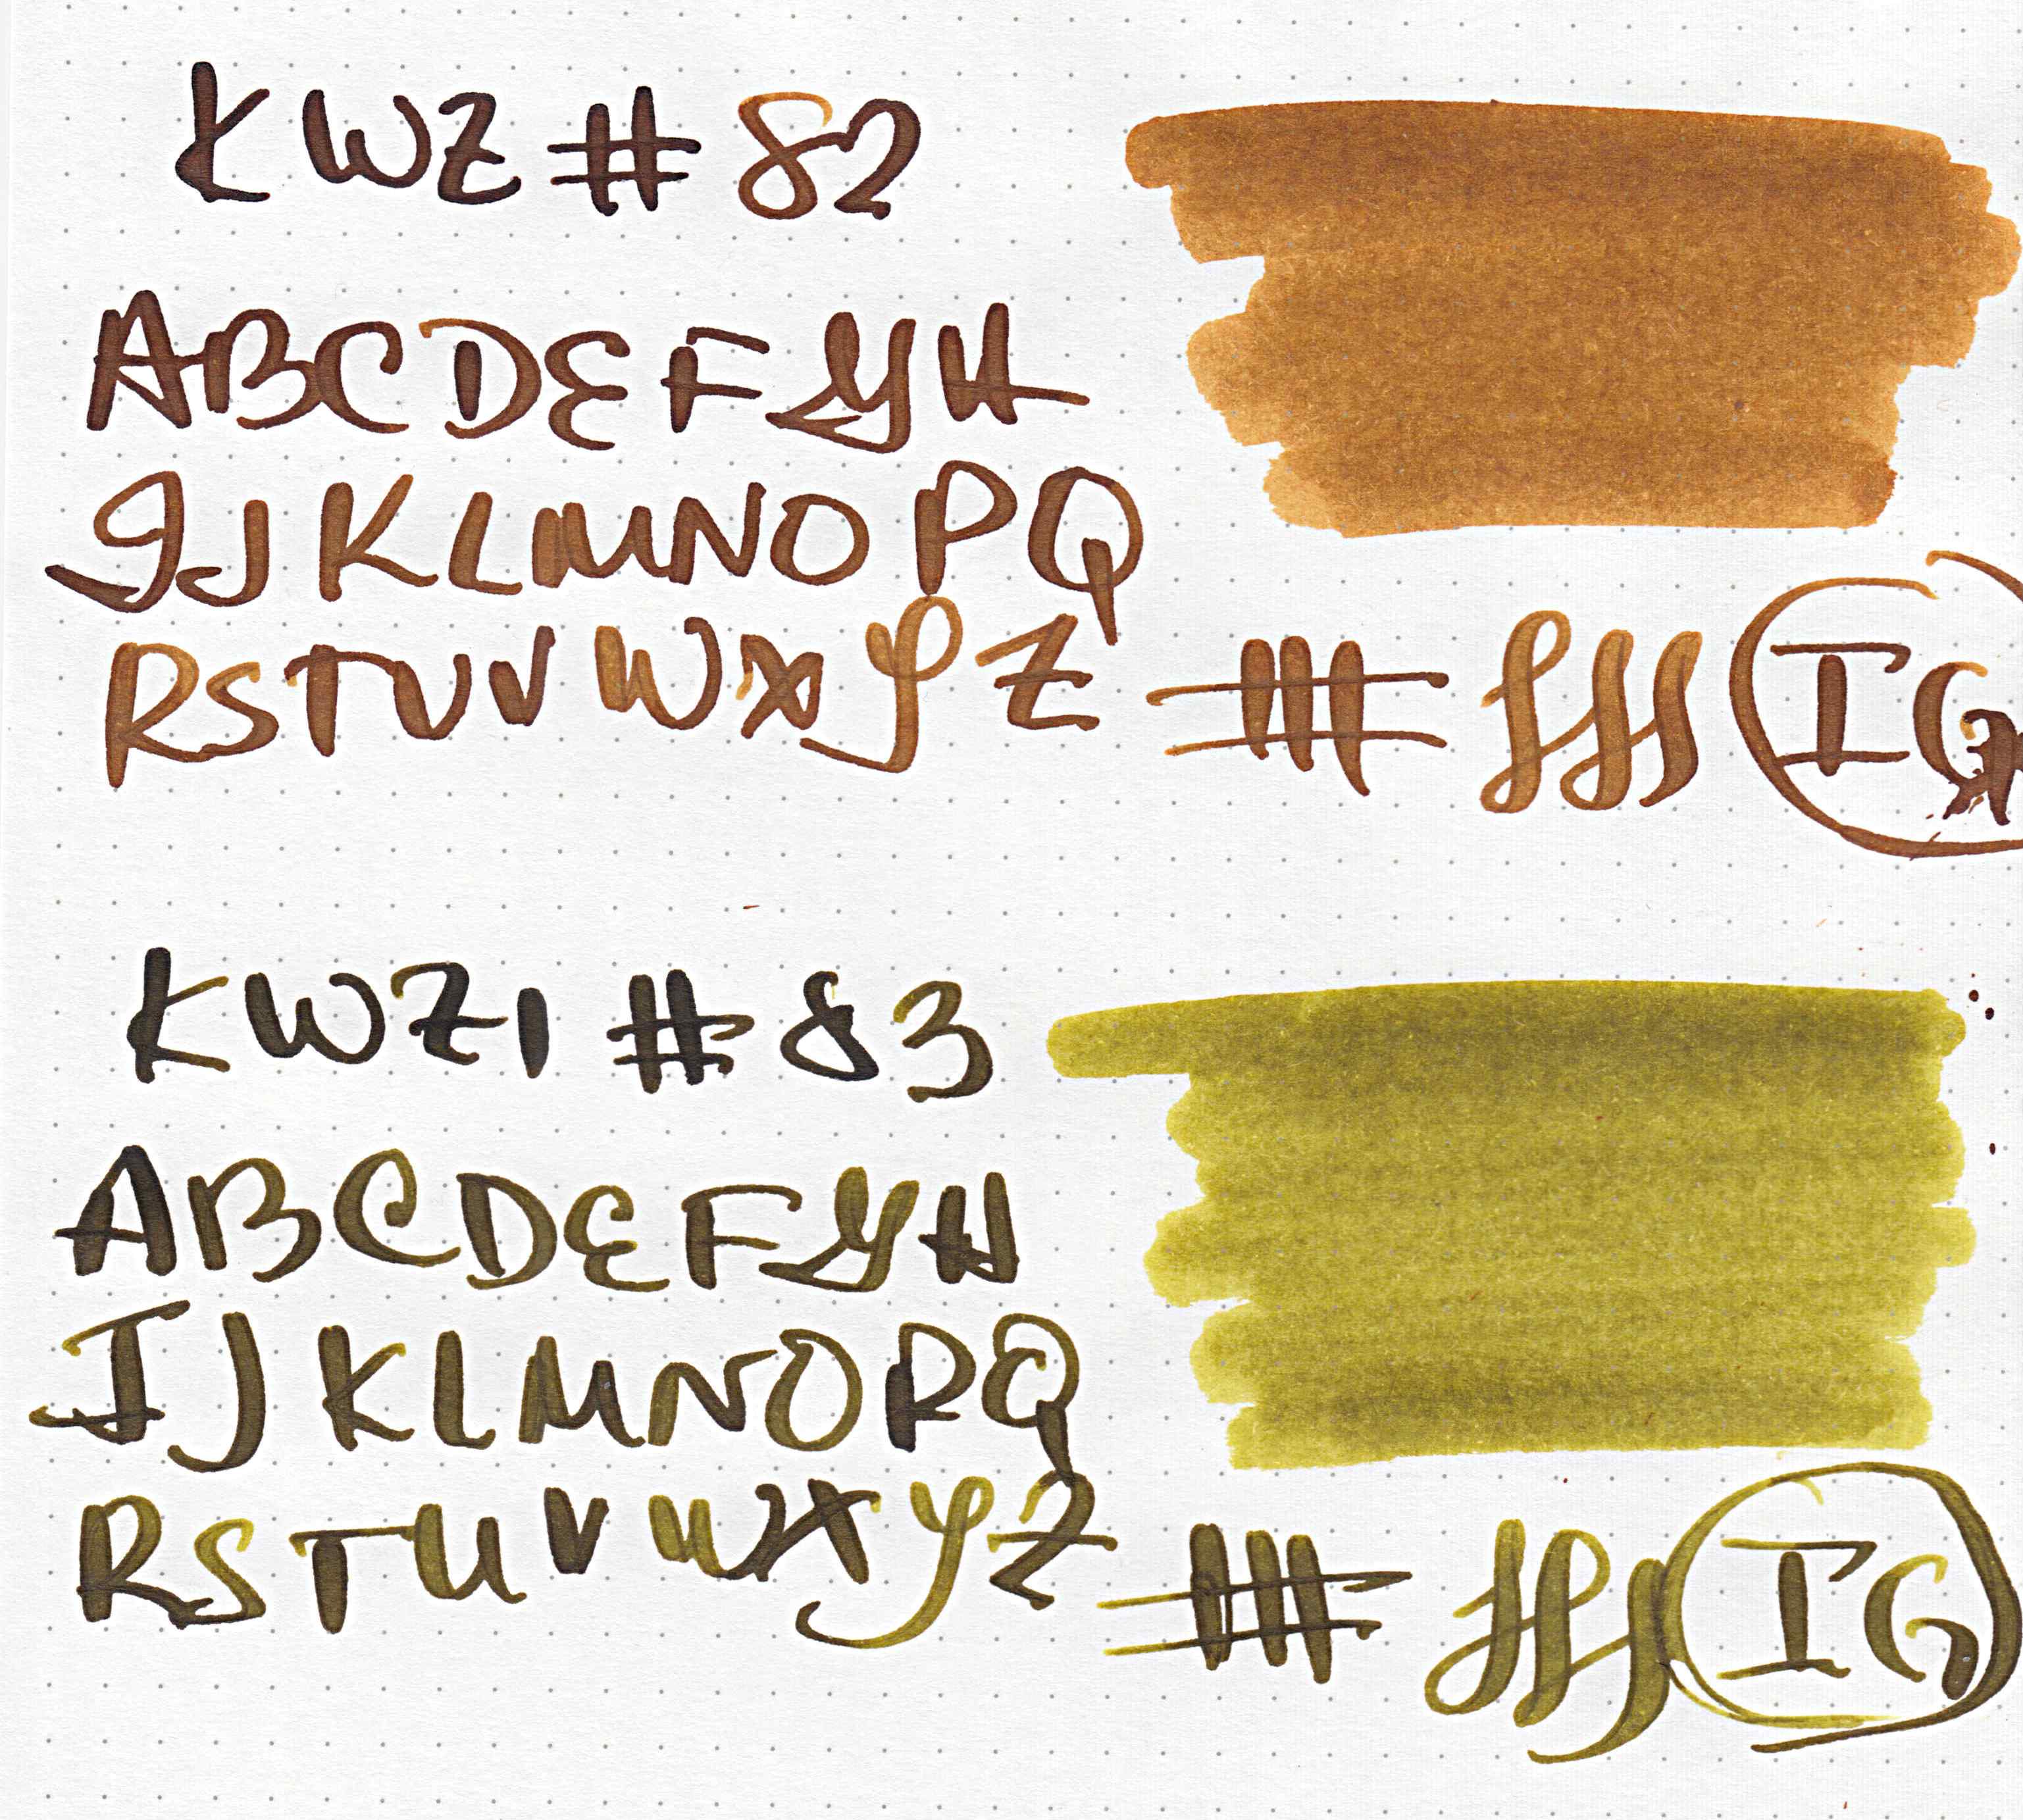 KWZ # 82
ABCDEFGH
IJKLMNOPQ
RSTUVWXYZ
IG
KWZI # 83
ABCDEFGH
IJKLMNOPQ
RSTUVWXYZ
IG